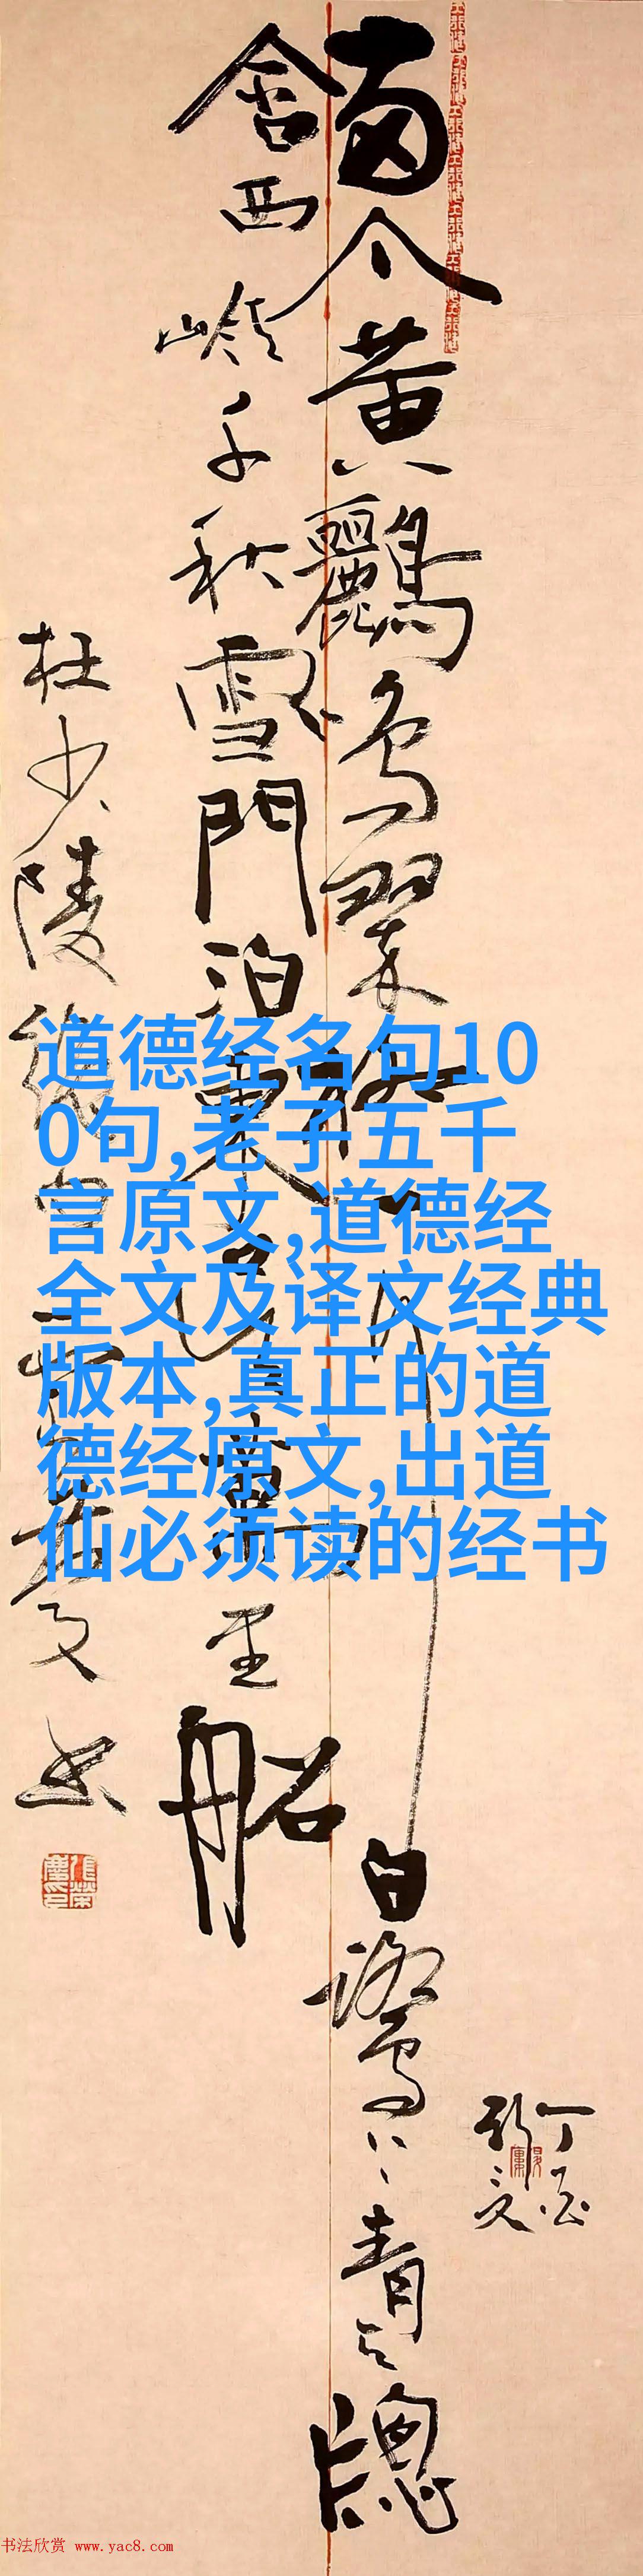 兩个黃鸝鳴翠柳一行白鷺上青天牕
含西嶺千秋雪門泊東吳萬里船
杜少陵絕句
道德经名句10
0句,老子五千
言原文,道德经
全文及译文经典
版本,真正的道
德经原文,出道
仙必须读的经书
书法欣赏 www.yac8.com